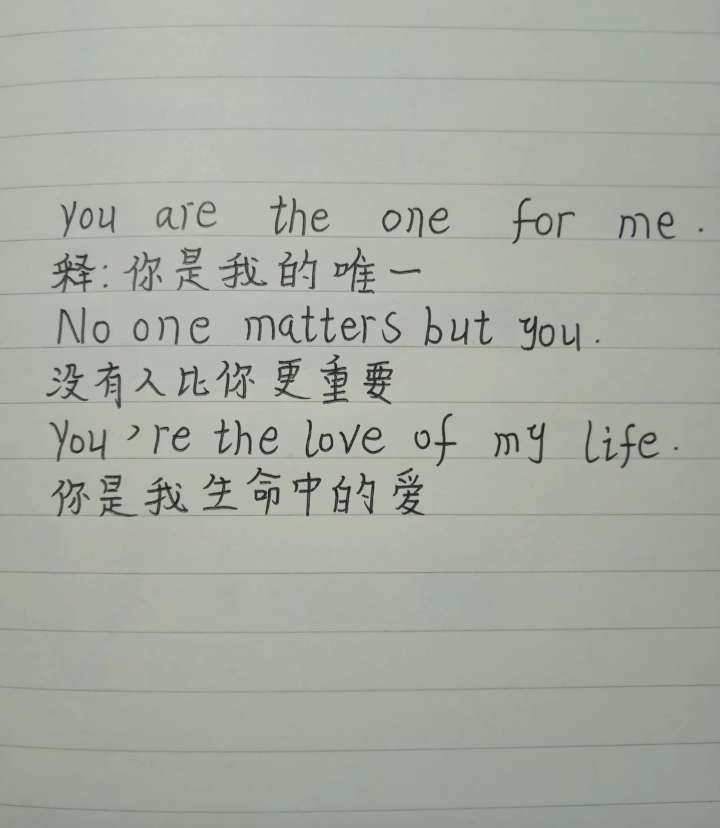 you are the one for me.
释:你是我的唯一
No one matters but you.
没有人比你更重要
You're the love of my life.
你是我生命中的爱